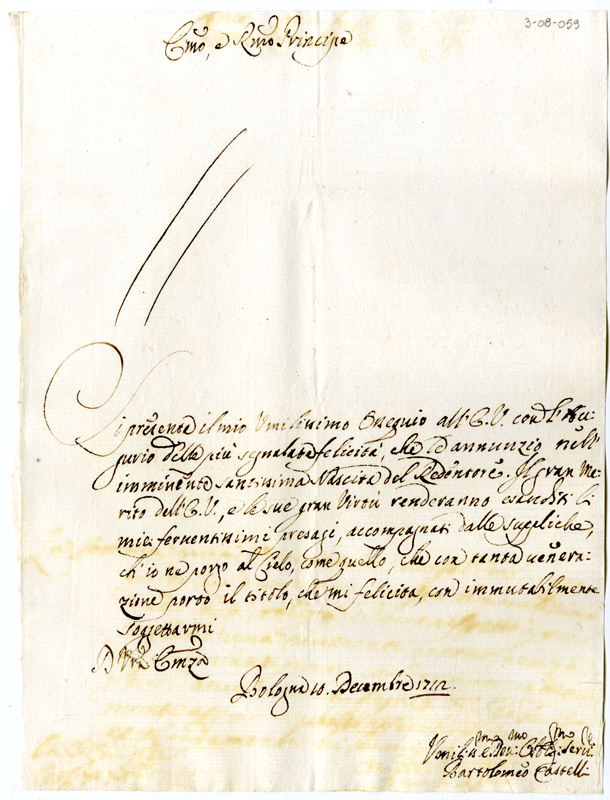 3-08-059
Emo, e Rmo Principe
Si presenta il mio Umilissimo Ossequio all' E. V. con l' Au:
gurio della più segnalata felicità, che Le annunzio nell'
imminente Santissima Nascita del Redentore. Il gran Me:
rito dell' E. V., e le sue gran Virtù renderanno esauditi li
miei ferventissimi presagi, accompagnati dalle suppliche,
ch' io ne porgo al Cielo, come quello, che con tanta venera:
zione porto il titolo, che mi felicita, con immutabilmente
soggettarmi
D Vra Emza
Bologna 10. Decembre 1712.
Umil:mo e Dev:mo Obbl:mo Serv:e
Bartolomeo Castelli